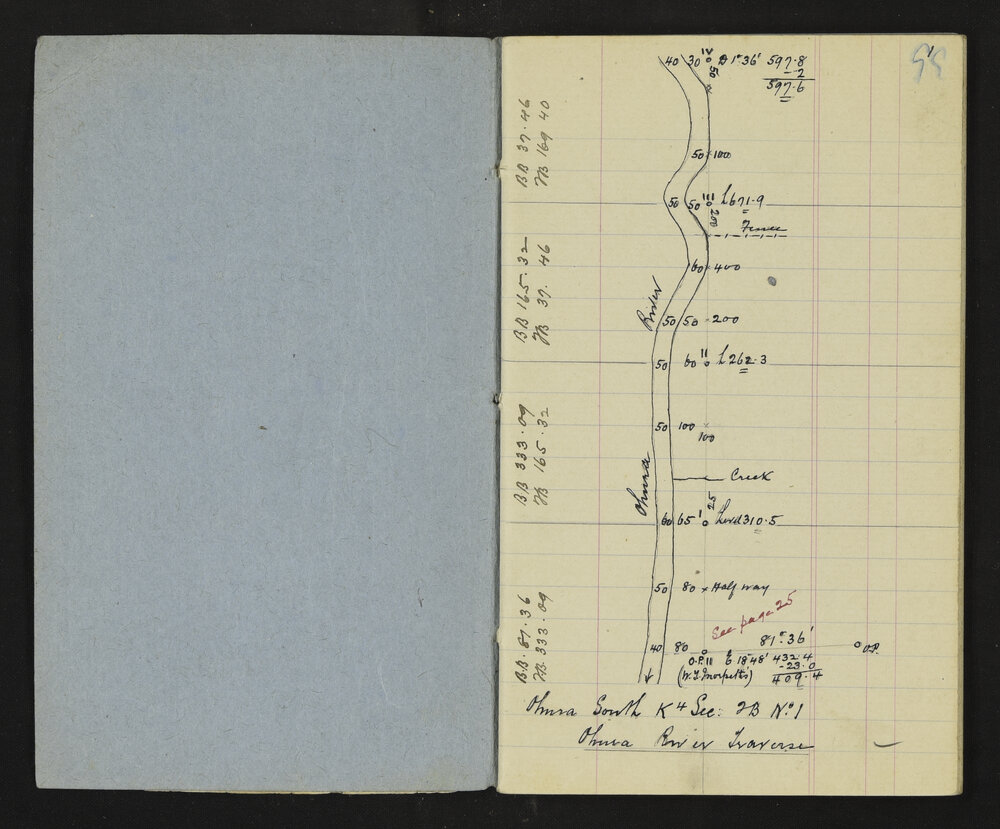 40 30 12 D 1° 36' 597.8
50 2
597.6
BB 37.46
FB 169 40
50 100
50 50 III L 671.9
200
Fence
60 400
BB 165.32
FB 37.46
River
50 50 200
50 60 11 L 262.3
BB 333.09
FB 165.32
50 100
100
Creek
Ohura
25
60 65 1 Level 310.5
50 80 x Half way
BB. 87.36
FB 333.09
See page 25
40 80 87° 36' O.P.
O.P. 11 6 18° 48' 432.4
-23.0
409.4
Ohura South K4 Sec: 2B No. 1
Ohura River Traverse